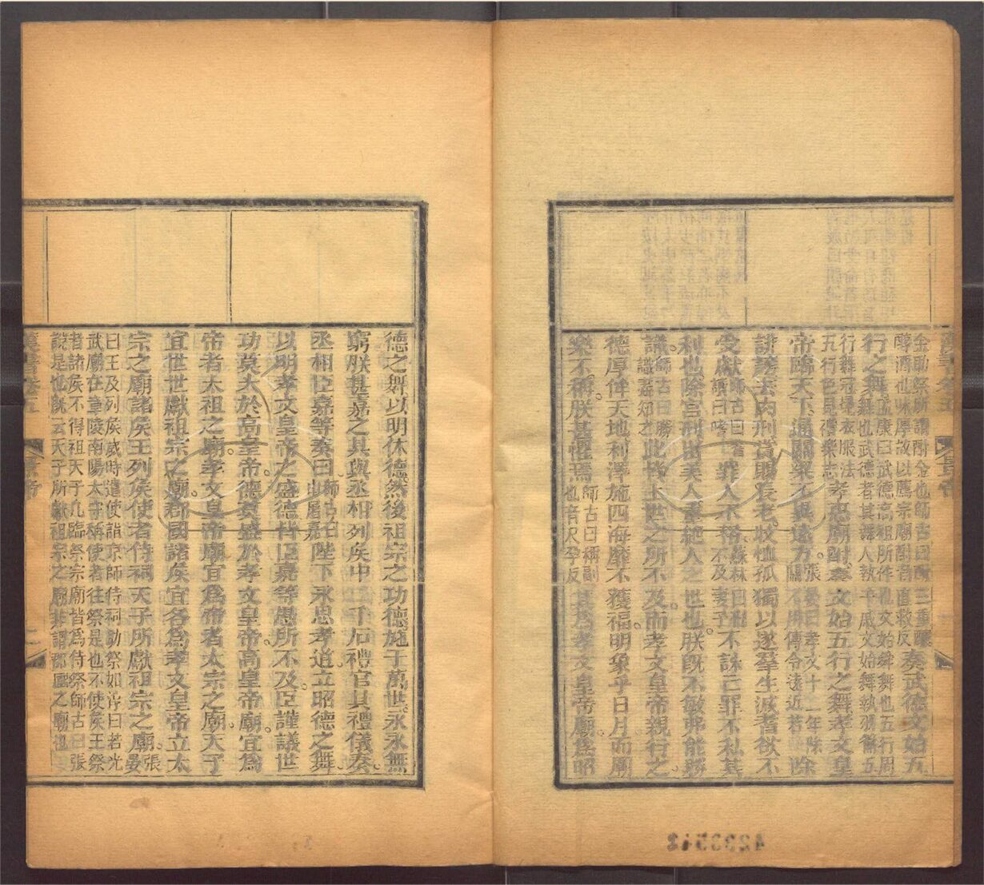 金助祭所謂酎金也師古曰酎三重釀
醇酒也味厚故以薦宗廟酎音直救反
奏武德文始五
行之舞
孟康曰武德高祖所作也文始舜舞也五行周
舞也武德者其舞人執干戚文始舞執羽籥五
行舞冠冕衣服法
五行色見禮樂志
孝惠廟酎奏文始五行之舞孝文皇
帝臨天下通關梁不異遠方
張晏曰孝文十二年除
關不用傳令遠近若
除
誹謗去肉刑賞賜長老收恤孤獨以遂羣生減耆欲不
受獻
師古曰耆
讀曰嗜
罪人不帑
蘇林曰刑
不及妻子
不誅亡罪不私其
利也除宮刑出美人重絶人之世也朕既不敏弗能勝
識
師古曰勝
識盡知之
此皆上世之所不及而孝文皇帝親行之
德厚侔天地利澤施四海靡不獲福明象乎日月而廟
樂不稱朕甚懼焉
師古曰稱副
也音尺孕反
其爲孝文皇帝廟爲昭
德之舞以明休德然後祖宗之功德施于萬世永永無
窮朕甚嘉之其與丞相列矦中二千石禮官具禮儀奏
丞相臣嘉等奏曰
師古曰
申屠嘉
陛下永思孝道立昭德之舞
以明孝文皇帝之盛德皆臣嘉等愚所不及臣謹議世
功莫大於高皇帝德莫盛於孝文皇帝高皇帝廟宜爲
帝者太祖之廟孝文皇帝廟宜爲帝者太宗之廟天子
宜世世獻祖宗之廟郡國諸矦宜各爲孝文皇帝立太
宗之廟諸矦王列矦使者侍祠天子所獻祖宗之廟
張晏
曰王及列矦歲時遣使詣京師侍祠助祭如淳曰若光
武廟在章陵南陽太守稱使者往祭是也不使矦王祭
者諸矦不得祖天子凡臨祭宗廟皆爲侍祭師古曰張
說是也旣云天子所獻祖宗之廟非謂郡國之廟也
漢書卷五
景帝